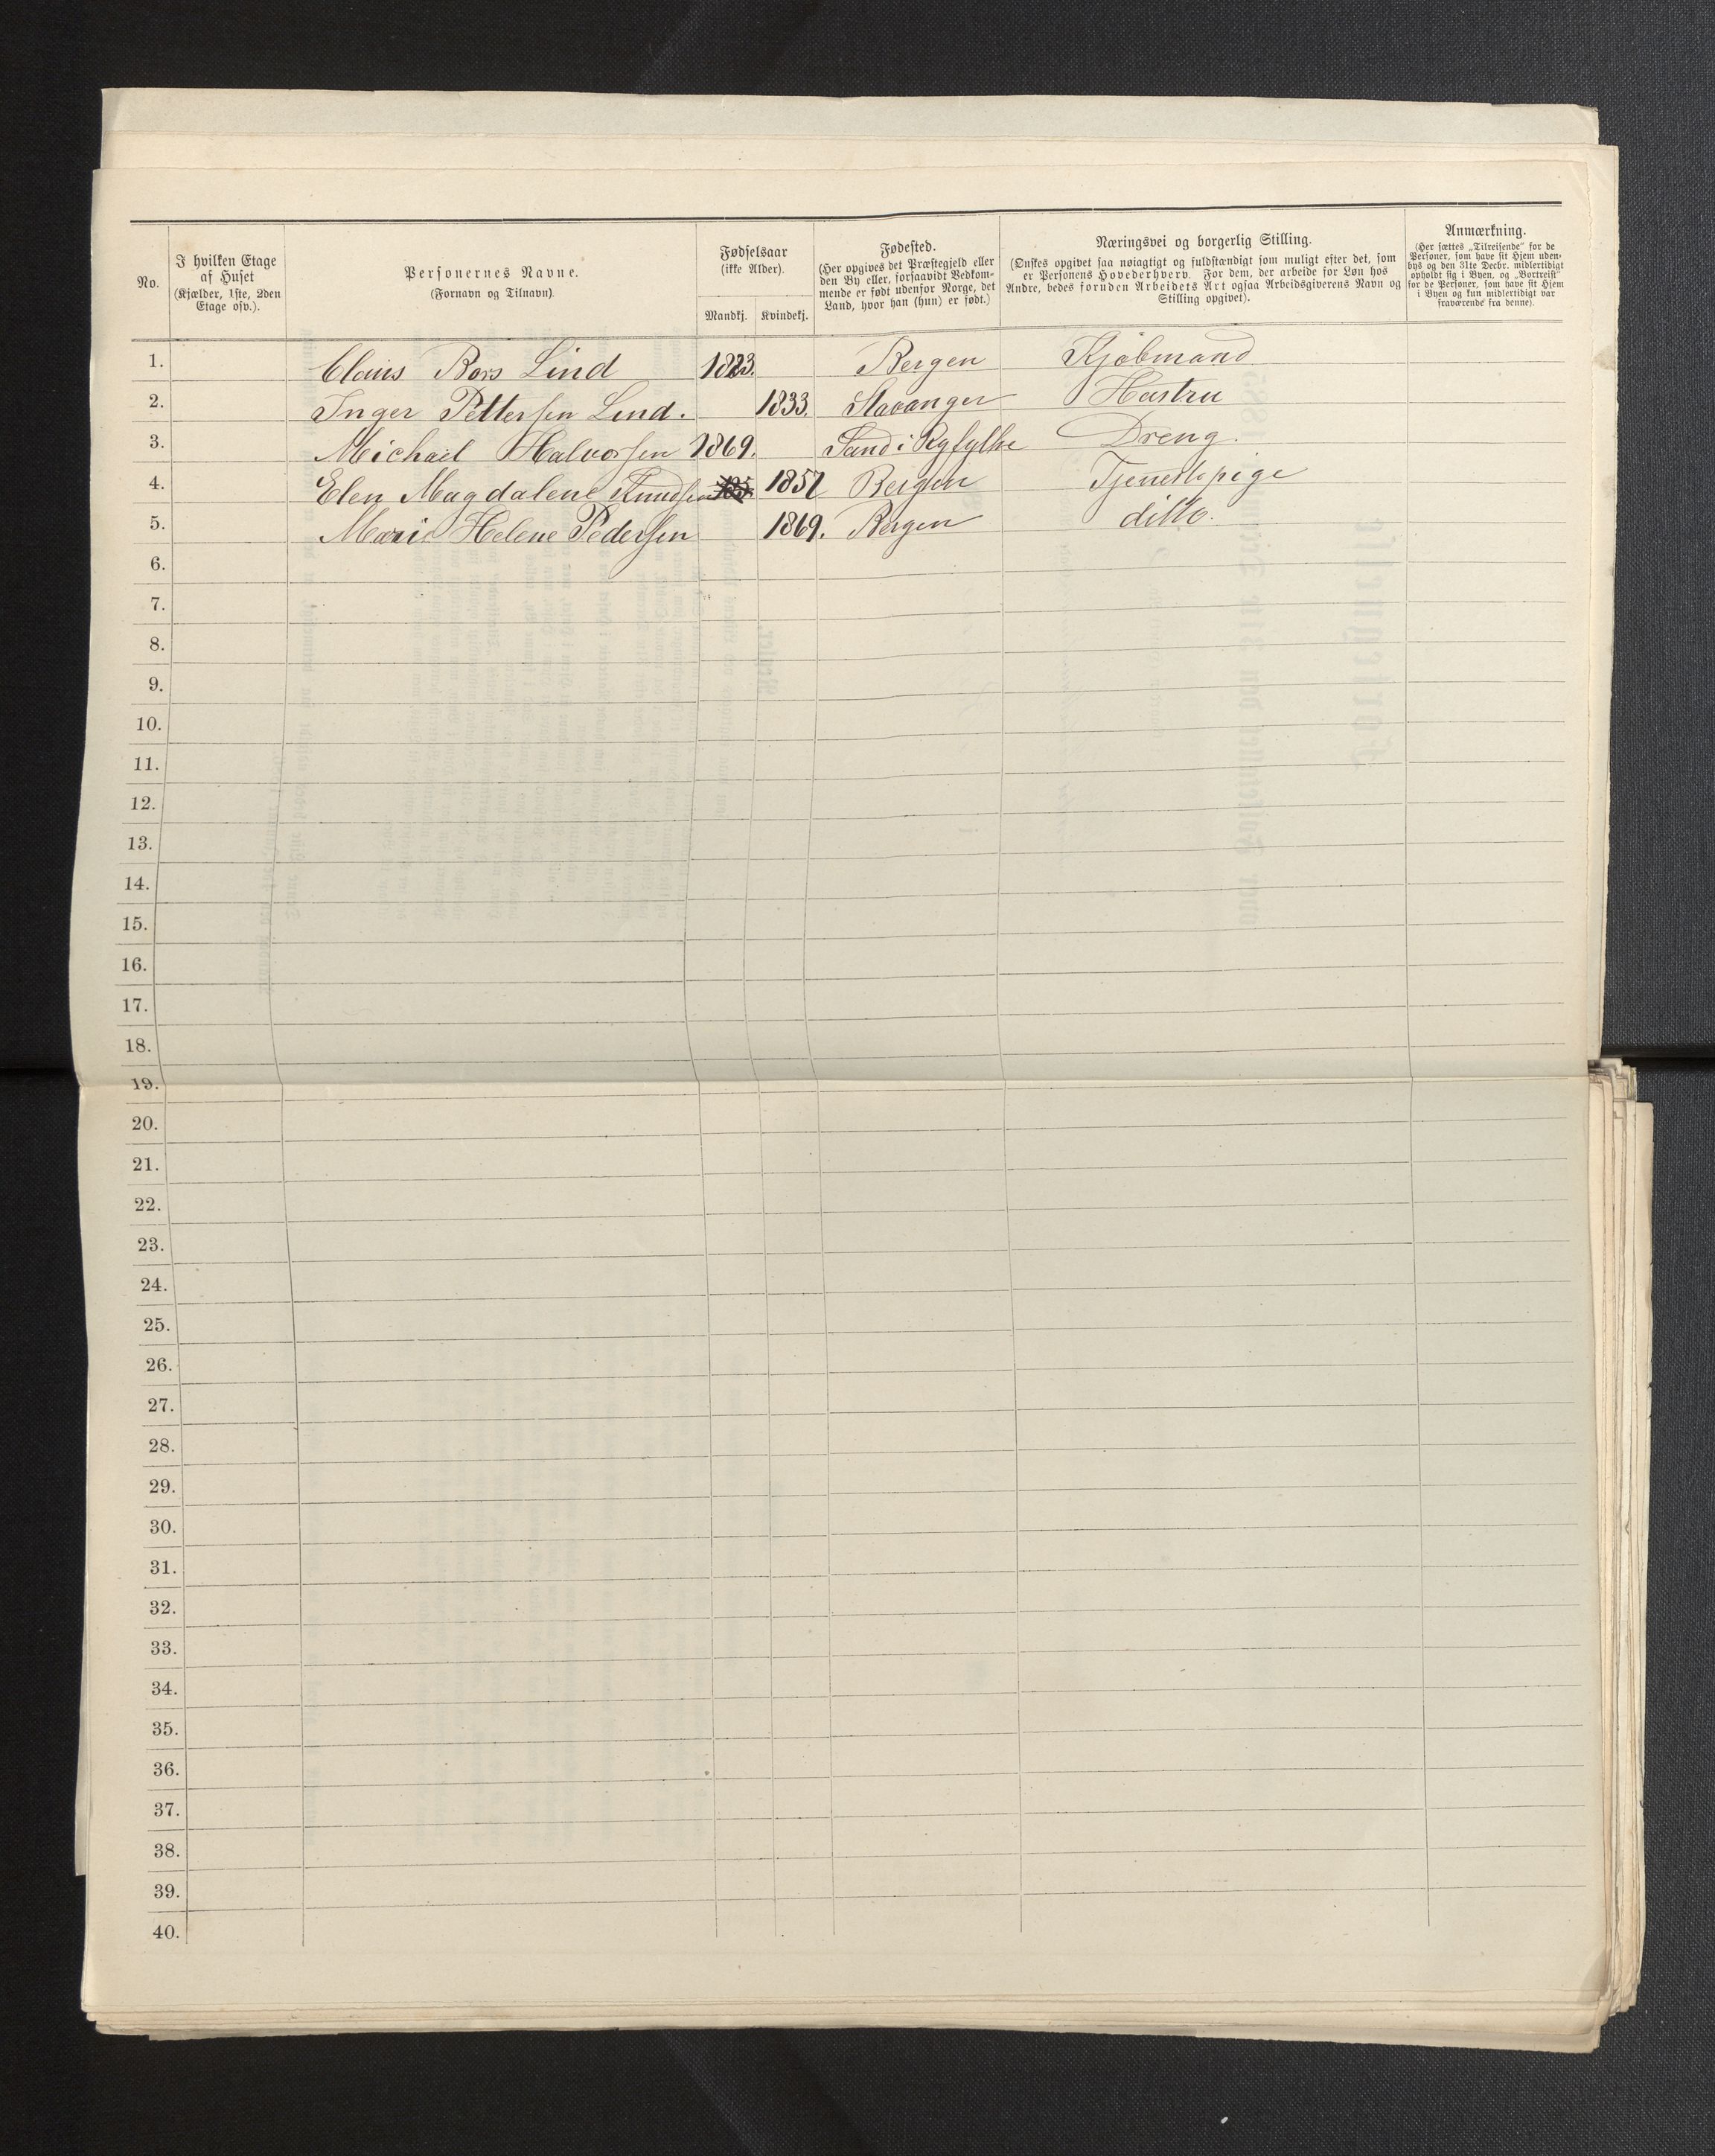 No.
I hvilken Etage
af Huset
(Kjælder, 1ste, 2den
Etage osv.).
Personernes Navne.
(Fornavn og Tilnavn).
Fødselsaar
(ikke Alder).
Mandkj.
Kvindekj.
Fødested.
(Her opgives det Præstegjeld eller
den By eller, forsaavidt Vedkom-
mende er født udenfor Norge, det
Land, hvor han (hun) er født.)
Næringsvei og borgerlig Stilling.
(Ønskes opgivet saa nøiagtigt og fuldstændigt som muligt efter det, som
er Personens Hovederhverv. For dem, der arbeide for Løn hos
Andre, bedes foruden Arbeidets Art ogsaa Arbeidsgiverens Navn og
Stilling opgivet).
Anmærkning.
(Her sættes „Tilreisende" for de
Personer, som have sit Hjem uden-
bys og den 31te Decbr. midlertidigt
opholdt sig i Byen, og „Bortreist"
for de Personer, som have sit Hjem
i Byen og kun midlertidigt var
fraværende fra denne).
1. Claus Bors Lind 1823. Bergen Kjøbmand
2. Inger Pettersen Lind. 1833. Stavanger Hustru
3. Michael Halvorsen 1869. Sand i Ryfylke Dreng.
4. Elen Magdalene Knudsen 1857 Bergen Tjenestepige
5. Marie Helene Pedersen 1869. Bergen ditto.
6.
7.
8.
9.
10.
11.
12.
13.
14.
15.
16.
17.
18.
19.
20.
21.
22.
23.
24.
25.
26.
27.
28.
29.
30.
31.
32.
33.
34.
35.
36.
37.
38.
39.
40.